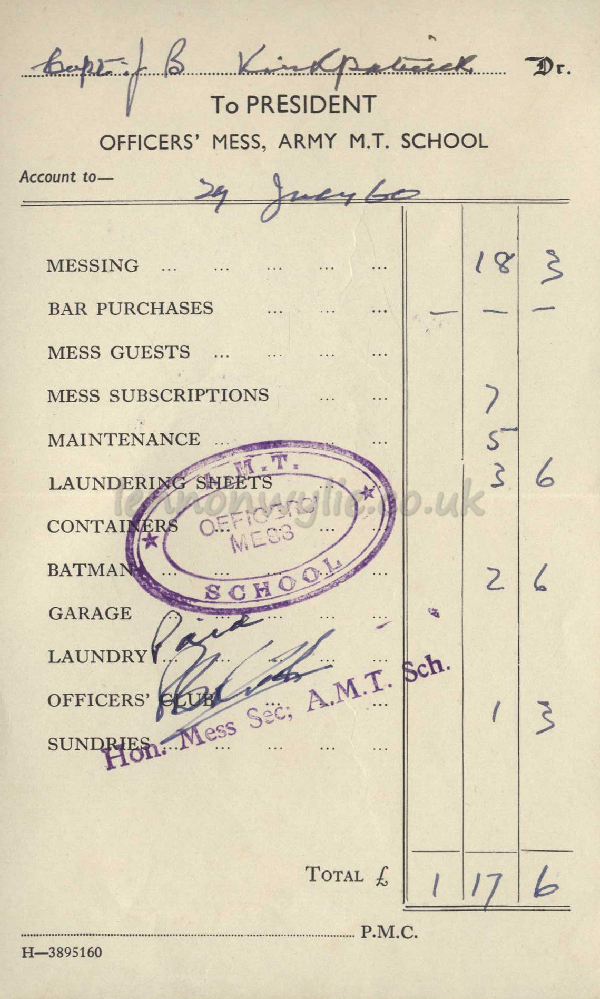 Capt. J B Kirkpatrick Dr.
To PRESIDENT
OFFICERS' MESS, ARMY M.T. SCHOOL
Account to—
29 July 60
MESSING ... ... ... ... ... 18 3
BAR PURCHASES ... ... ... — — —
MESS GUESTS ... ... ... ...
MESS SUBSCRIPTIONS ... ... 7
MAINTENANCE ... ... ... ... 5
LAUNDERING SHEETS ... ... 3 6
CONTAINERS ... ... ... ...
BATMAN ... ... ... ... ... 2 6
GARAGE ... ... ... ...
LAUNDRY ... ... ... ... ...
OFFICERS' CLUB ... ... ... 1 3
SUNDRIES ... ... ... ... ...
A.M.T.
OFFICERS'
MESS
SCHOOL
lennonwylie.co.uk
Paid
Hon. Mess Sec; A.M.T. Sch.
TOTAL £ 1 17 6
P.M.C.
H—3895160